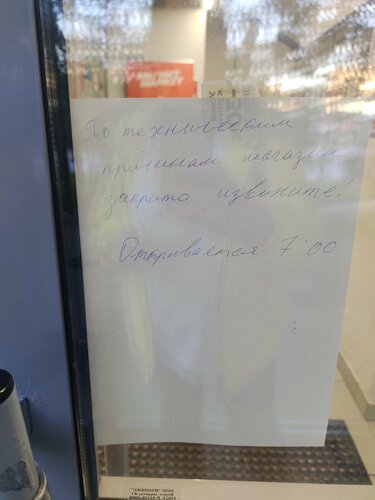 По техническим
причинам магазин
закрито извените!
Открывается 7:00